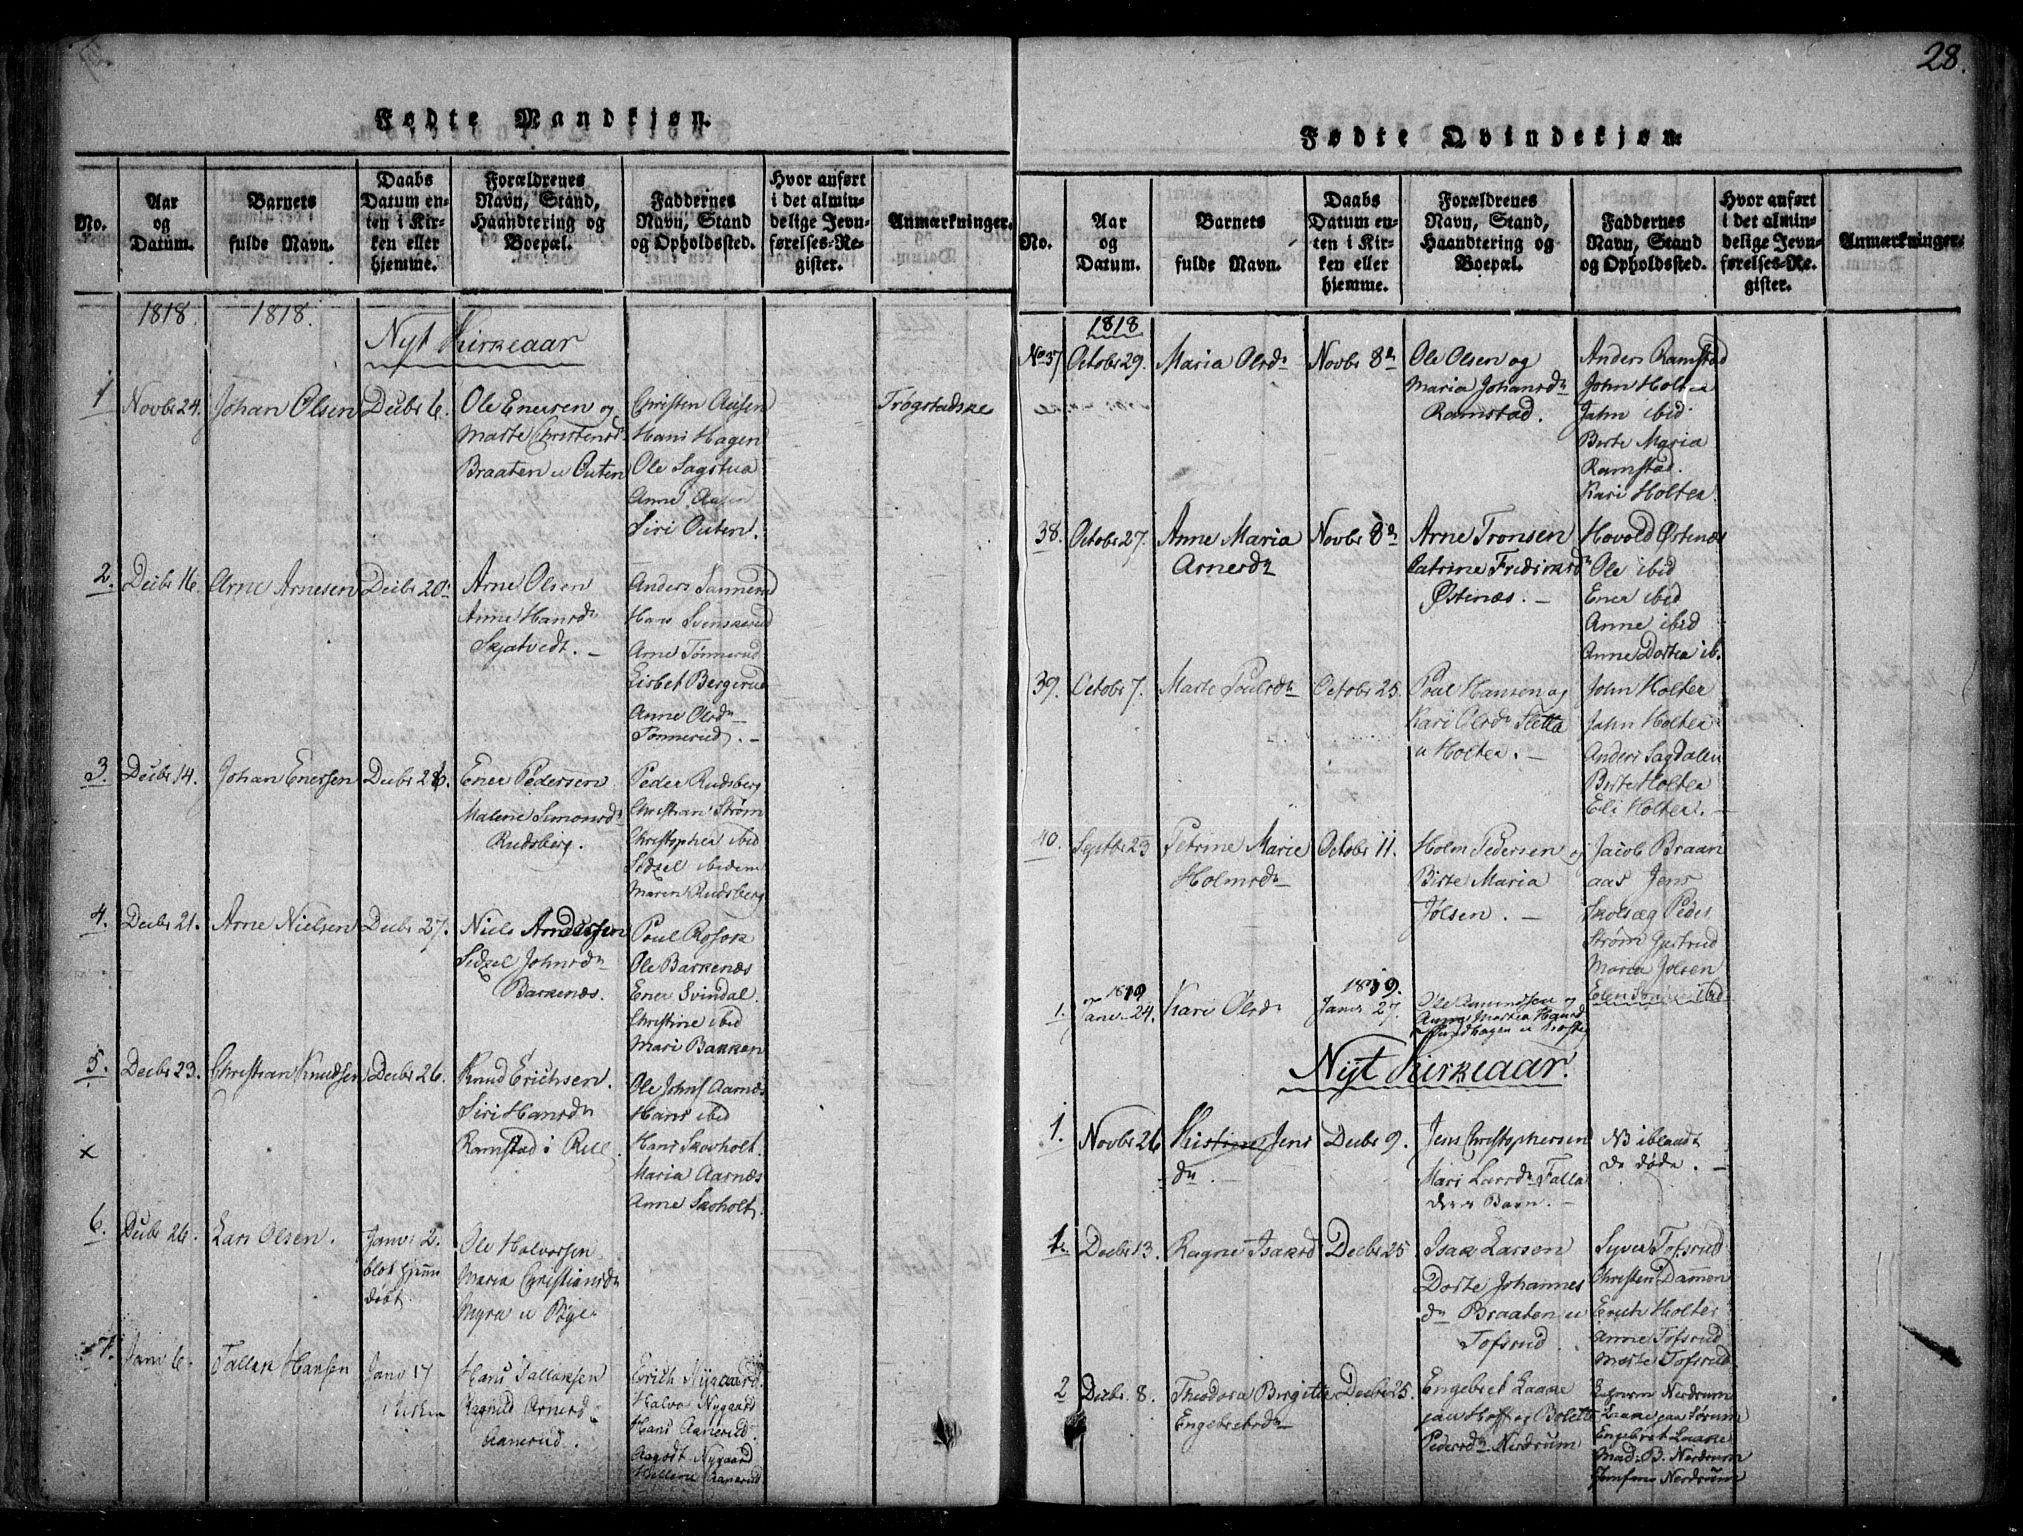 Fødte Mandkjøn.
No.
Aar
og
Datum.
Barnets
fulde Navn.
Daabs
Datum en-
ten i Kir-
ken eller
hjemme.
Forældrenes
Navn, Stand,
Haandtering og
Boepæl.
Faddernes
Navn, Stand
og Opholdssted.
Hvor anført
i det almin-
delige Jevn-
førelses-Re-
gister.
Anmærkninger.
1818.
1818.
Nyt Kirkeaar
1
Novbr 24.
Johan Olsen
Decbr 6.
Ole Enersen og
Marte Christensd.
Braaten u Outen
Christen Aasen
Hans Hagen
Ole Sagstua
Anne Aasen
Siri Outen.
Trøgstadske
2.
Decbr 16.
Arne Arnesen
Decbr 20.
Arne Olsen
Anne Hansdn
Skjatvedt. –
Anders Sannerud
Hans Svenskerud
Arne Tønnerud
Lisbet Bergerud
Anne Olsdn
Tønnerud. –
3.
Decbr 14.
Johan Enersen
Decbr 26.
Ener Pedersen
Malene Simonsdn
Rudsberg.
Peder Rudsberg
Christian Strøm
Christopher ibid
Sidsel ibidem
Maren Rudsberg
4.
Decbr 21.
Arne Nielsen
Decbr 27.
Niels Andersen
Sidsel Johnsdn
Barkenæs.
Poul
Ole Barkenæs
Ener Svindal.
Christine ibid
Mari Bakken
5.
Decbr 23.
Christian Knudsen
Decbr 26.
Knud Erichsen.
Siri Hansdn
Ramstad i
Ole Johns Aarnæs
Hans ibid
Hans Skovholt.
Maria Aarnæs
Anne Skoholt.
x
6.
Decbr 26.
Lars Olsen.
Janv: 2.
blot hjem
døbt.
Ole Halvorsen
Maria Christiansdn
Myra u Bøye
7.
Janv 6.
Tallak Hansen
Janv 17
i Kirken
Hans Tallaksen
Ragnild Arnesd
Aanerud.
Erich Nygaard.
Halvo Nygaard
Hans Aanerud.
Aagodt Nygaard
Aanerud
28.
Fødte Qvindekjøn.
No.
Aar
og
Datum.
Barnets
fulde Navn.
Daabs
Datum en-
ten i Kir-
ken eller
hjemme.
Forældrenes
Navn, Stand,
Haandtering og
Boepæl.
Faddernes
Navn, Stand
og Opholdssted.
Hvor anført
i det almin-
delige Jevn-
førelses-Re-
gister.
Anmærkninger.
1818
No 37
Octobr 29.
Maria Olsdn
Novbr 8de
Ole Olsen og
Maria Johansdn
Ramstad.
Anders Ramstad
John Holter
Jahn ibid
Berte Maria
Ramstad.
Kari Holter
38.
Octobr 27.
Anne Maria
Arnesdn
Novbr 8de
Arne Tronsen
Catrine Fredriksdn
Østenæs. –
Hovold Østenæs
Ole ibid
Ener ibid
Anne ibid
Anne Dortea ib.
39.
Octobr 7.
Marte Poulsdn
Octobr 25.
Poul Hansen og
Kari Olsdn Sletta
u Holter. –
John Holter
Jahn Holter
Anders Sagdalen
Birte Holter
Eli Holter. –
40.
Septbr 23
Petrine Marie
Holmsdn
Octobr 11.
Holm Pedersen og
Birte Maria
Jølsen. –
Jacob Braan
aas Jens
Skolsæg Peder
Strøm
Maria Jølsen
ibid
1.
1819
Janv 24.
Kari Olsdn
1819.
Janv 27.
Ole Amundsen og
Anne Martea Hansd
Nyt Kirkeaar.
1.
Novbr 26
Kistine Jens
dn
Decbr 9.
Jens Christophersen
Mari Larsdn Falla
deres Barn. –
NB iblandt
de døde. –
1.
Decbr 13.
Ragne Isaksd
Decbr 25
Isak Larsen
Dorte Johannes
dn Braaten u
Tofsrud.
Syver Tofsrud
Christen Dammen
Erich Holter
Anne Tofsrud
Marte Tofsrud
2
Decbr 8.
Theodora Birgitte
Engebretsdn
Decbr 25.
Engebret Laake
paa Hoff og Bolette
Pedersdn Nerdrum
Nerdrum
Laake paa Sørum
Engebret Laake
Mad: B. Nerdrum
Jomfrue Nerdrum